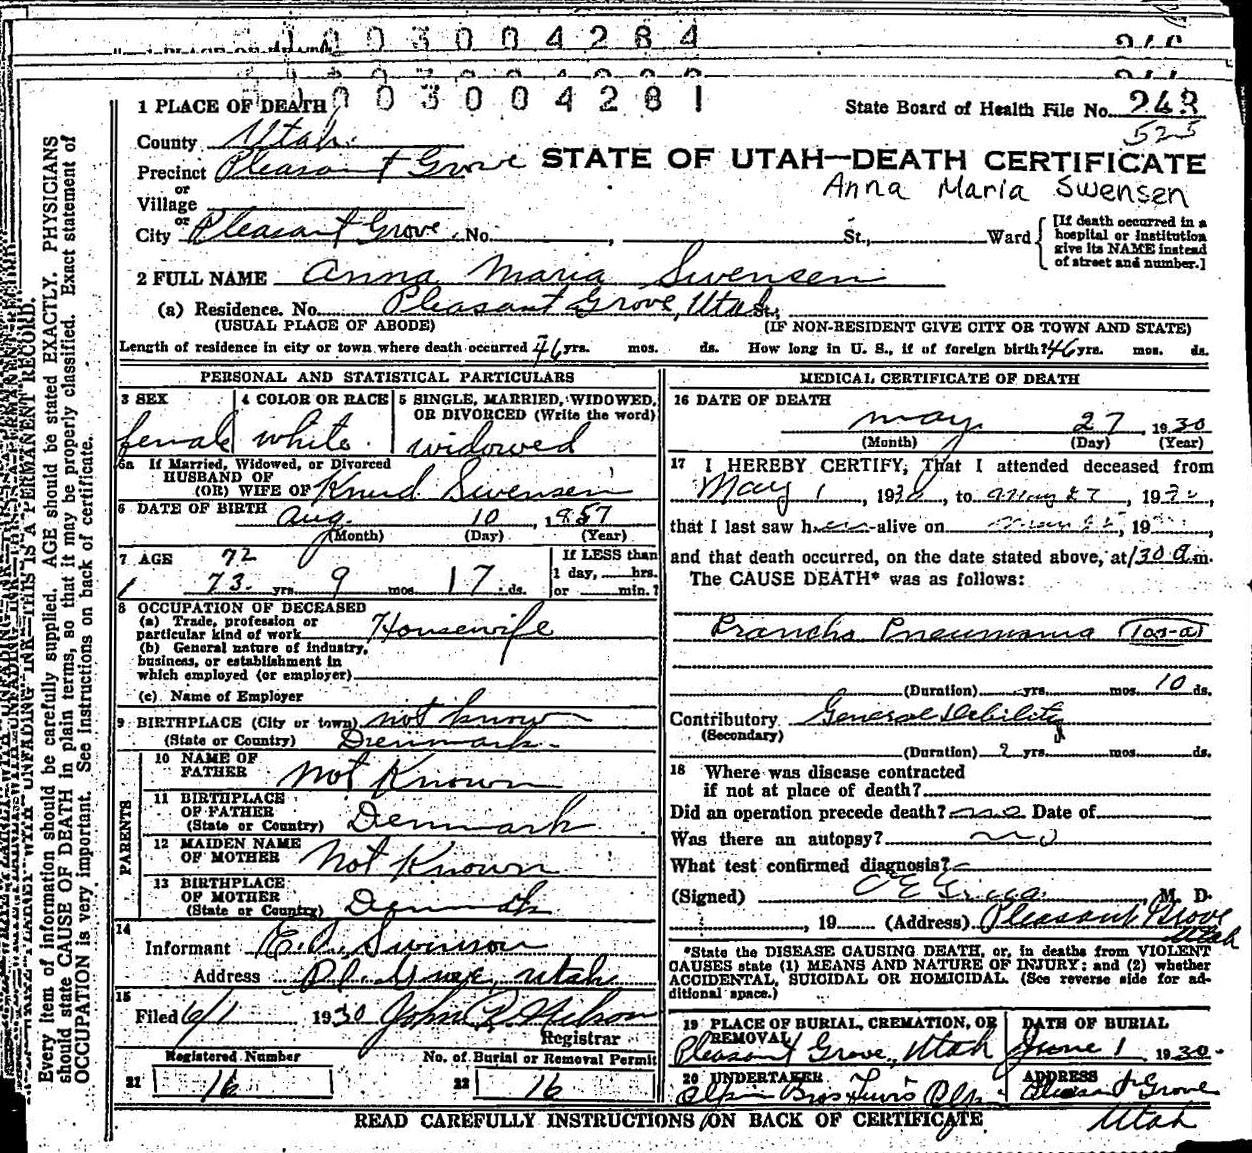 1003004284
246
1003004281
1 PLACE OF DEATH
State Board of Health File No. 243
525
County Utah.
Precinct Pleasant Grove
STATE OF UTAH—DEATH CERTIFICATE
or
Village
Anna Maria Swensen
or
City Pleasant Grove. No. , St., Ward
[If death occurred in a hospital or institution give its NAME instead of street and number.]
2 FULL NAME Anna Maria Swensen
(a) Residence. No. Pleasant Grove, Utah St.,
(USUAL PLACE OF ABODE) (IF NON-RESIDENT GIVE CITY OR TOWN AND STATE)
Length of residence in city or town where death occurred 46 yrs. mos. ds. How long in U. S., if of foreign birth? 46 yrs. mos. ds.
PERSONAL AND STATISTICAL PARTICULARS
3 SEX
female
4 COLOR OR RACE
white.
5 SINGLE, MARRIED, WIDOWED, OR DIVORCED (Write the word)
widowed
5a If Married, Widowed, or Divorced
HUSBAND OF
(OR) WIFE OF Knud Swensen
6 DATE OF BIRTH Aug. 10, 1857
(Month) (Day) (Year)
7 AGE 72
73 yrs. 9 mos. 17 ds.
If LESS than
1 day, hrs.
or min.?
8 OCCUPATION OF DECEASED
(a) Trade, profession or
particular kind of work Housewife
(b) General nature of industry,
business, or establishment in
which employed (or employer)
(c) Name of Employer
9 BIRTHPLACE (City or town) not know
(State or Country) Denmark.
PARENTS
10 NAME OF
FATHER Not Known
11 BIRTHPLACE
OF FATHER
(State or Country) Denmark
12 MAIDEN NAME
OF MOTHER Not Known
13 BIRTHPLACE
OF MOTHER
(State or Country) Denmark
14
Informant Swenson
Address Pl. Grove, Utah
15
Filed 6/1 1930 John R. Nelson
Registrar
Registered Number No. of Burial or Removal Permit
21 16 22 16
MEDICAL CERTIFICATE OF DEATH
16 DATE OF DEATH
May 27, 1930
(Month) (Day) (Year)
17 I HEREBY CERTIFY, That I attended deceased from
May 1, 1930, to May 27, 1930,
that I last saw her alive on , 19
and that death occurred, on the date stated above, at 130 a.m.
The CAUSE DEATH* was as follows:
Broncho Pneumonia
(Duration) yrs. mos. 10 ds.
Contributory General Debility
(Secondary)
(Duration) 2 yrs. mos. ds.
18 Where was disease contracted
if not at place of death?
Did an operation precede death? no Date of
Was there an autopsy? no
What test confirmed diagnosis?
(Signed) M. D.
, 19 (Address) Pleasant Grove
Utah
*State the DISEASE CAUSING DEATH, or, in deaths from VIOLENT
CAUSES state (1) MEANS AND NATURE OF INJURY; and (2) whether
ACCIDENTAL, SUICIDAL OR HOMICIDAL. (See reverse side for ad-
ditional space.)
19 PLACE OF BURIAL, CREMATION, OR
REMOVAL
Pleasant Grove, Utah
DATE OF BURIAL
June 1 1930.
20 UNDERTAKER
ADDRESS
Pleasant Grove
Utah
READ CAREFULLY INSTRUCTIONS ON BACK OF CERTIFICATE
UNFADING INK—THIS IS A PERMANENT RECORD.
Every item of information should be carefully supplied. AGE should be stated EXACTLY. PHYSICIANS
should state CAUSE OF DEATH in plain terms, so that it may be properly classified. Exact statement of
OCCUPATION is very important. See instructions on back of certificate.